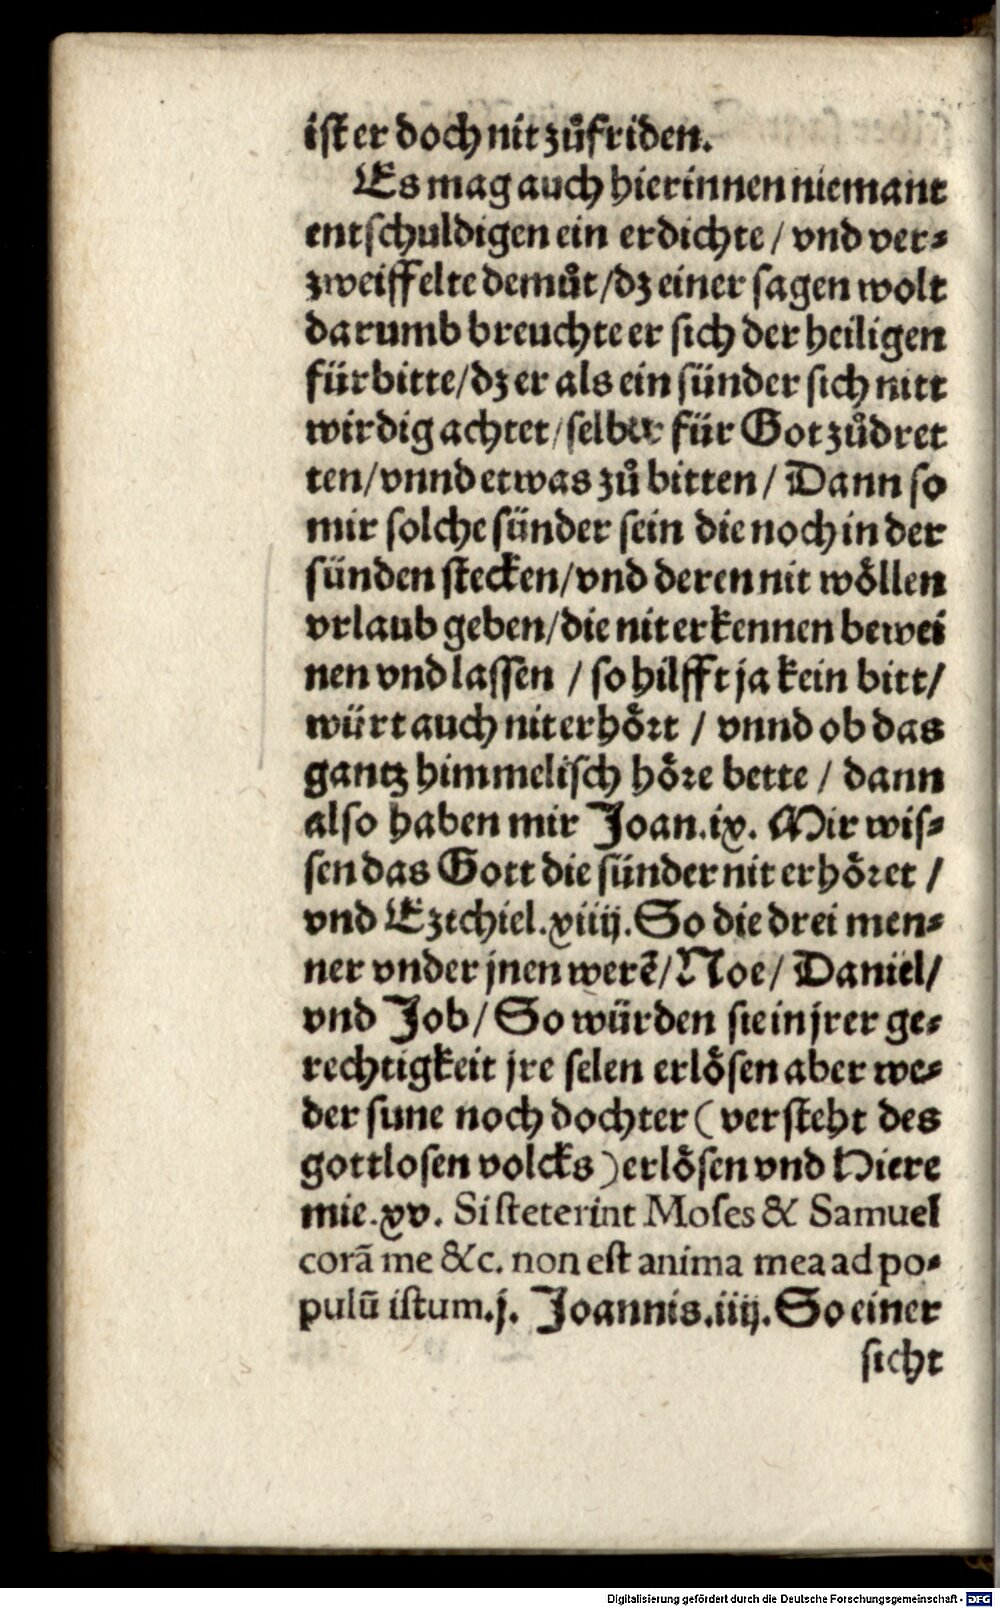 ist er doch nit zůfriden.
Es mag auch hierinnen niemant
entschuldigen ein erdichte / vnd ver⸗
zweiffelte demůt / dz einer sagen wolt
darumb breuchte er sich der heiligen
fürbitte / dz er als ein sünder sich nitt
wirdig achtet / selber für Got zůdret
ten / vnnd etwas zů bitten / Dann so
mir solche sünder sein die noch in der
sünden stecken / vnd deren nit wöllen
vrlaub geben / die nit erkennen bewei
nen vnd lassen / so hilfft ja kein bitt /
würt auch nit erhört / vnnd ob das
gantz himmelisch höre bette / dann
also haben mir Joan.ix. Mir wis⸗
sen das Gott die sünder nit erhöret /
vnd Ezechiel.xiiij. So die drei men⸗
ner vnder jnen werẽ / Noe / Daniel /
vnd Job / So würden sie in jrer ge⸗
rechtigkeit jre selen erlösen aber we⸗
der sune noch dochter ( versteht des
gottlosen volcks ) erlösen vnd Hiere
mie.xv. Si steterint Moses & Samuel
corã me &c. non est anima mea ad po⸗
pulũ istum.j. Joannis.iiij. So einer
sicht
Digitalisierung gefördert durch die Deutsche Forschungsgemeinschaft - DFG